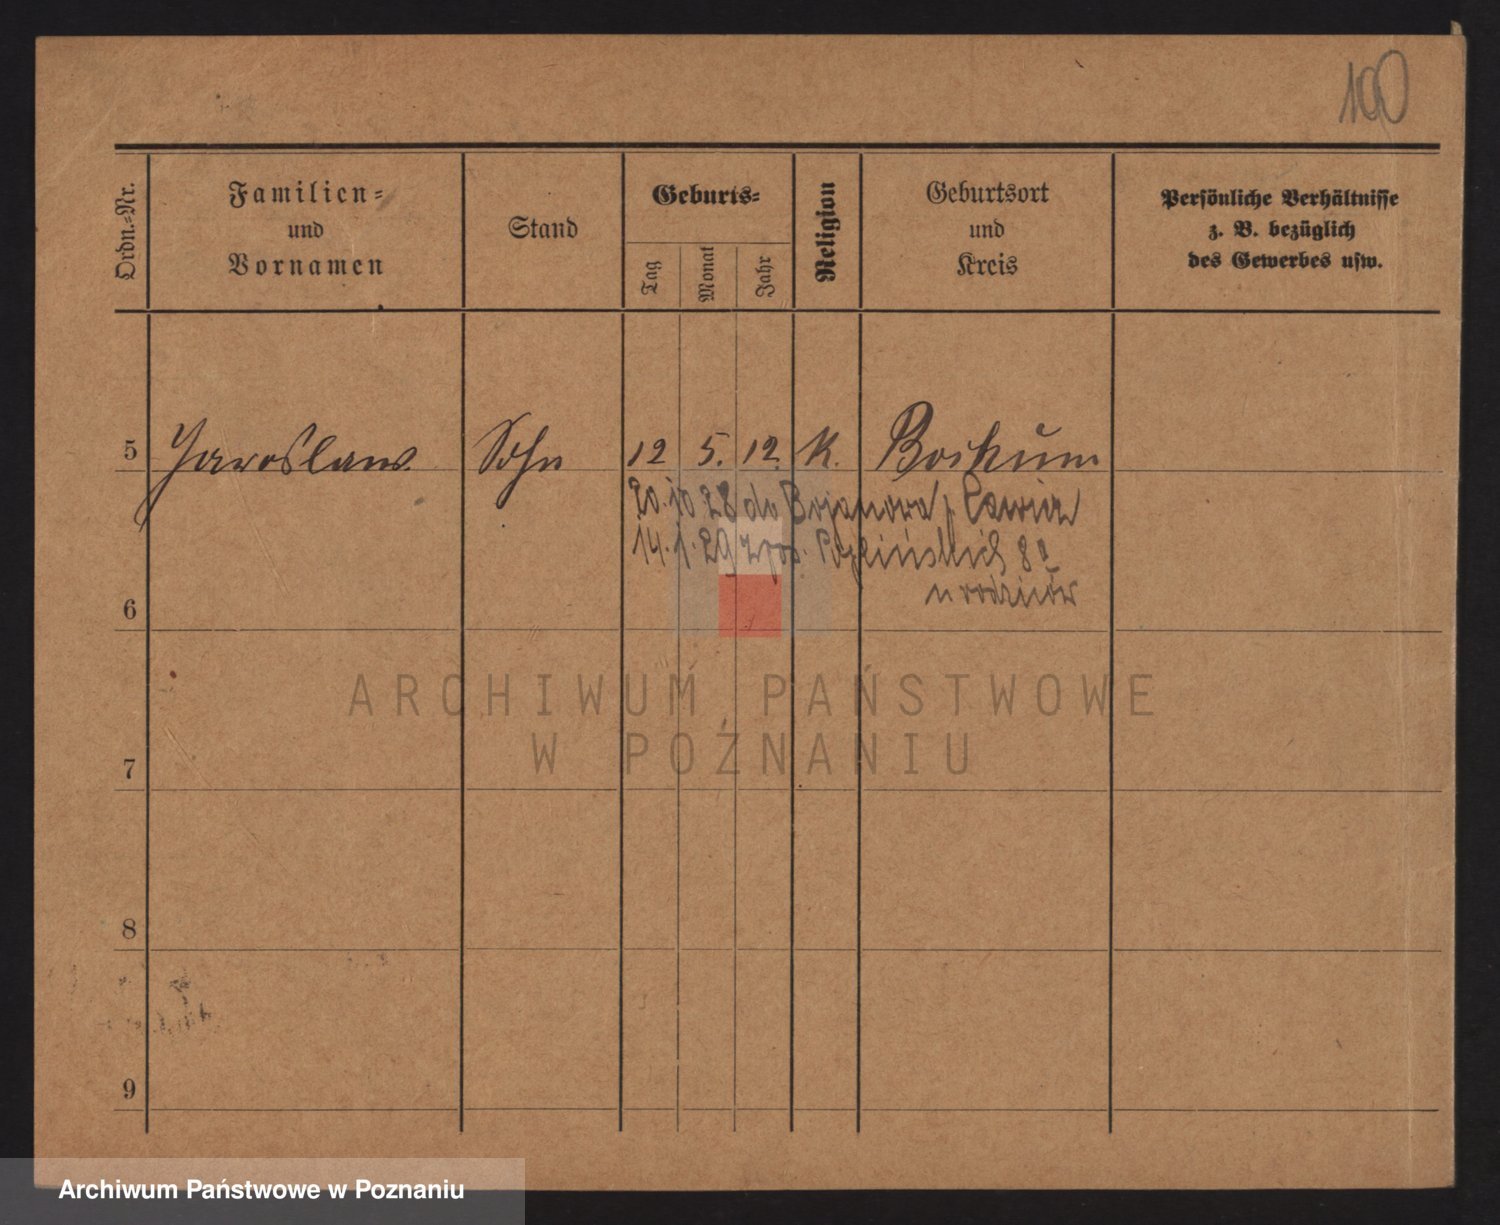 100
Ordn.-Nr.
Familien-
und
Vornamen
Stand
Geburts-
Tag
Monat
Jahr
Religion
Geburtsort
und
Kreis
Persönliche Verhältnisse
z. B. bezüglich
des Gewerbes usw.
5 Jaroslaus Sohn 12 5. 12. K. Bochum
20.10.28 do Bojanowa p. Rawicz
14.1.29 z pow. 8a
u rodziców
6
ARCHIWUM PAŃSTWOWE
W POZNANIU
7
8
9
Archiwum Państwowe w Poznaniu